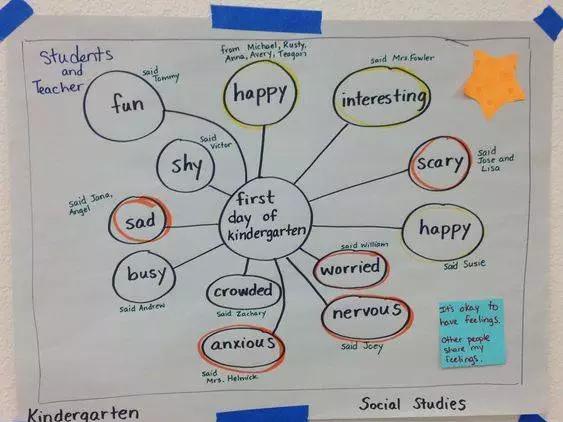 Students
and
Teacher
said
Tommy
fun
from Michael, Rusty,
Anna, Avery, Teagan
happy
said Mrs. Fowler
interesting
said
Victor
shy
scary
said
Jose and
Lisa
said Jana,
Angel
sad
first
day of
kindergarten
happy
said Susie
busy
said Andrew
crowded
said Zachary
said William
worried
nervous
said Joey
anxious
said
Mrs. Helnick
It's okay to
have feelings.
Other people
share my
feelings.
Kindergarten
Social Studies